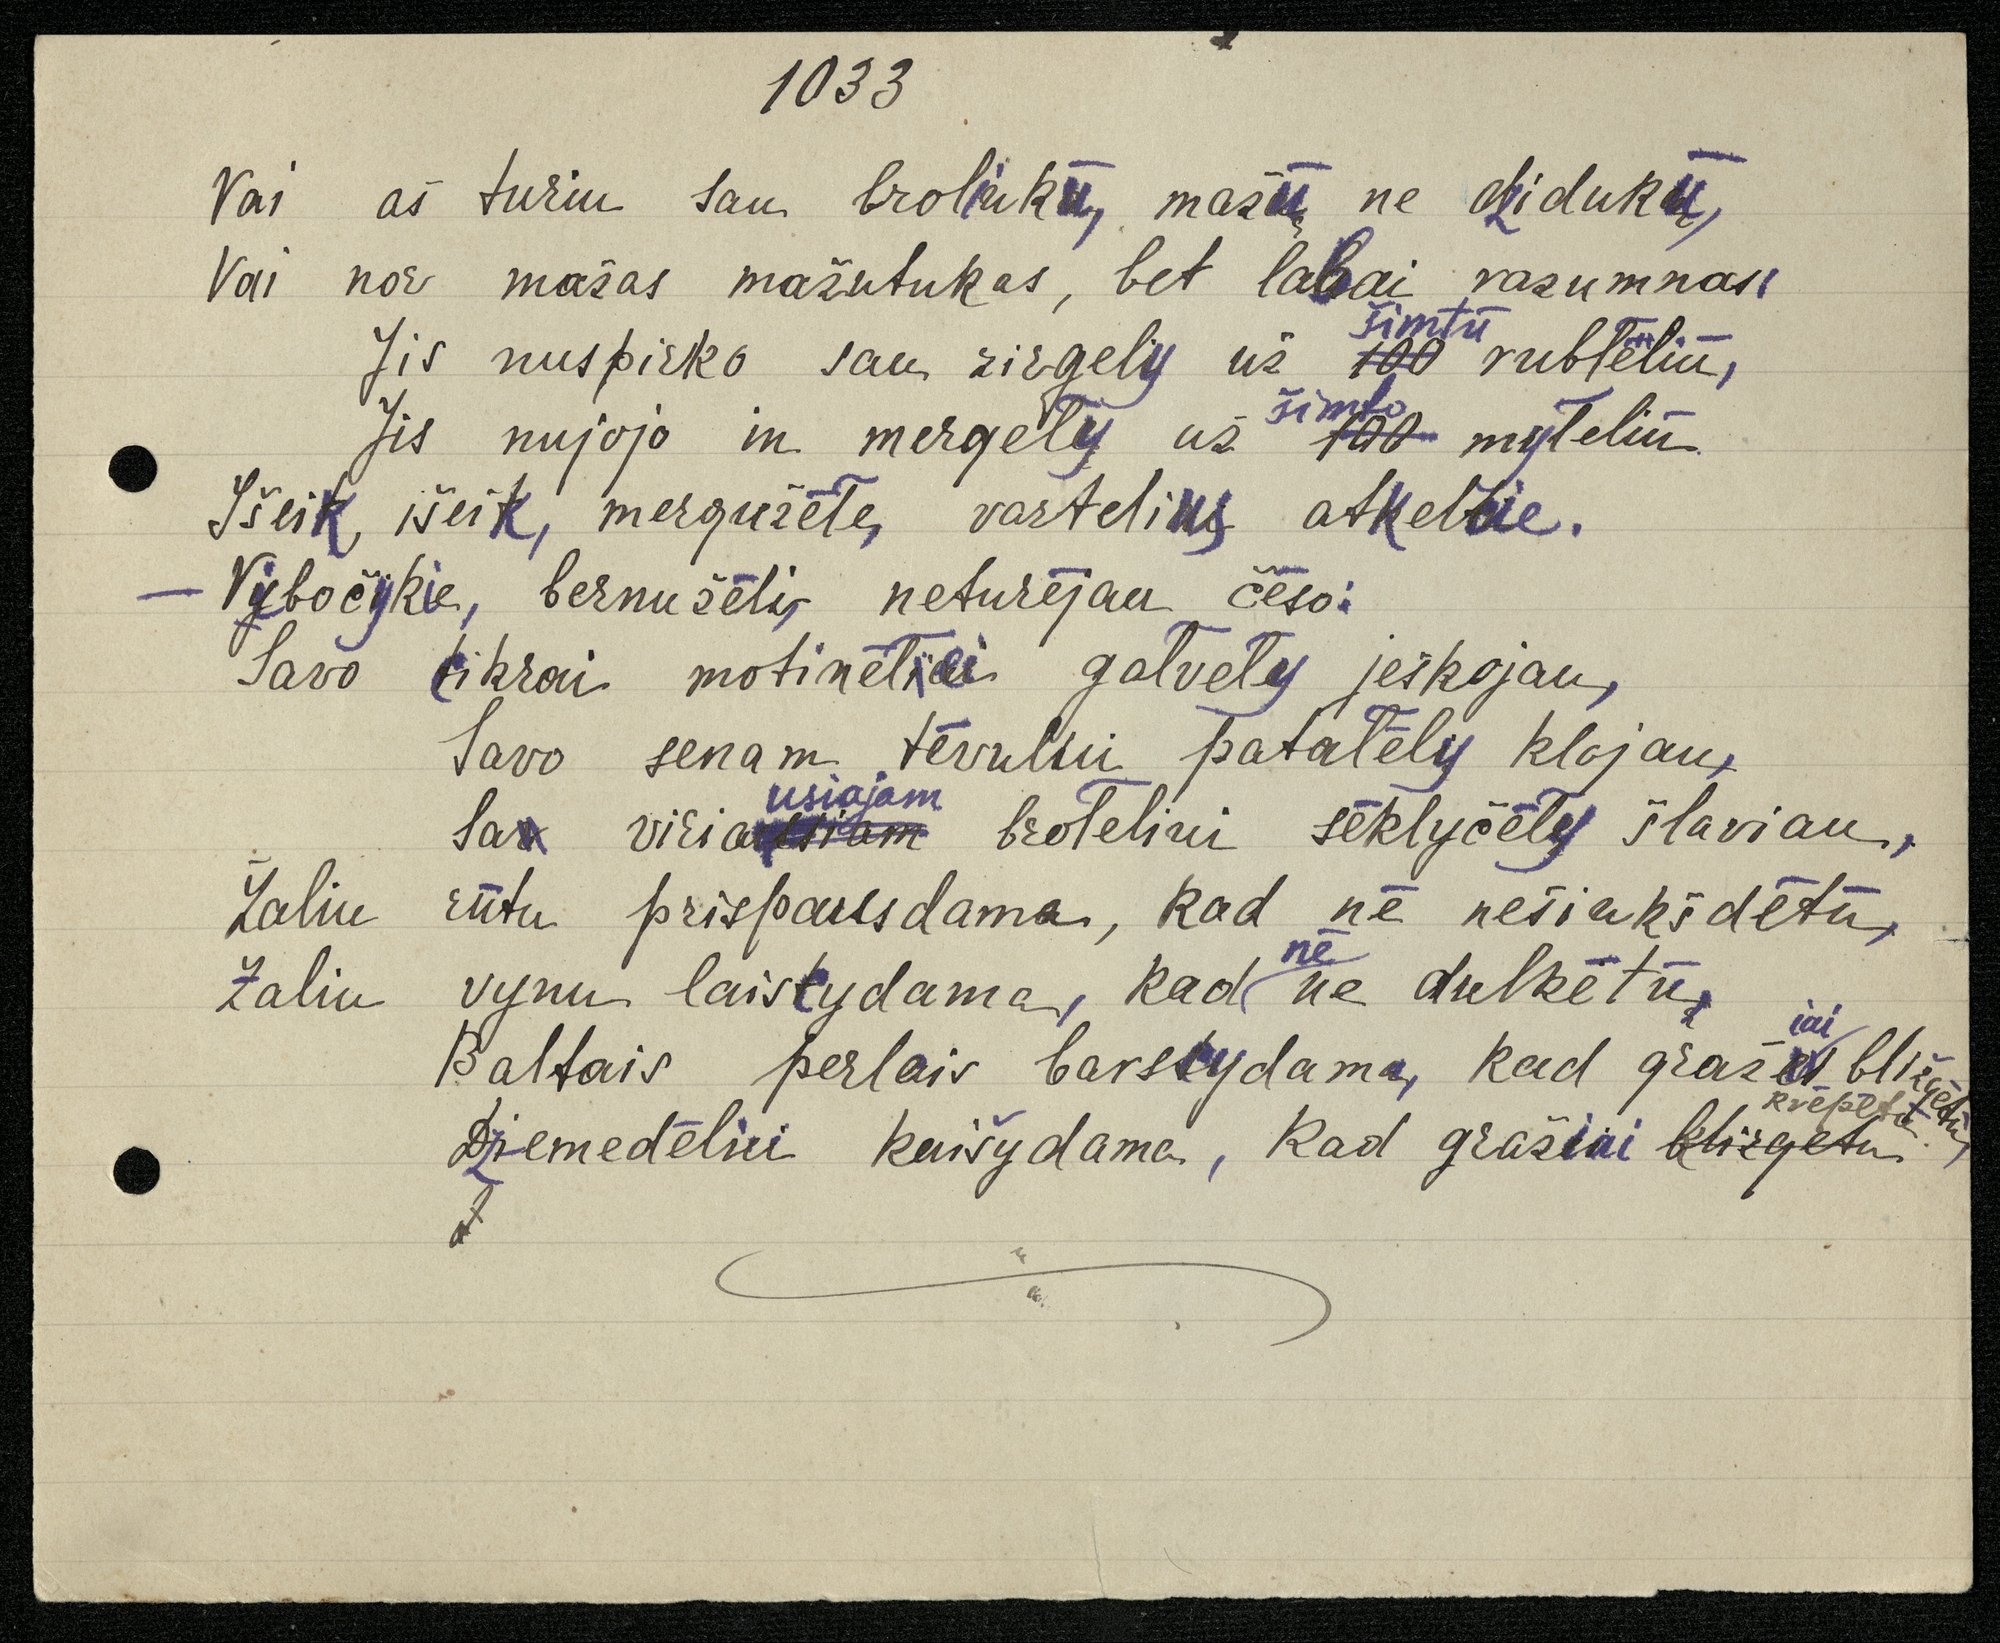 1033
Vai aš turiu sau broliukū, mažū ne dzidukū,
Vai nor mažas mažutukas, bet labai razumnas.
Jis nuspirko sau zirgely už šimtū rublēliū,
Jis nujojo in mergely už šimto myleliū
Išeik, išeik, mergužēle, vartelius atkelkie.
— Vybočykie, bernužēli, neturējau čēso:
Savo cikrai motinēliai galvely ješkojau,
Savo senam tēvuliui patalēly klojau,
Sav viriausiajam broleliui sēklyčēly šlaviau,
Žaliu rūtu prisparsdama, kad nē nešiukšdētū,
Žaliu vynu laiscydama, kad nē dulkētū,
Baltais perlais barscydama, kad gražiai blizgētū,
Dziemedēliui kaišydama, kad gražiai kvepētū.